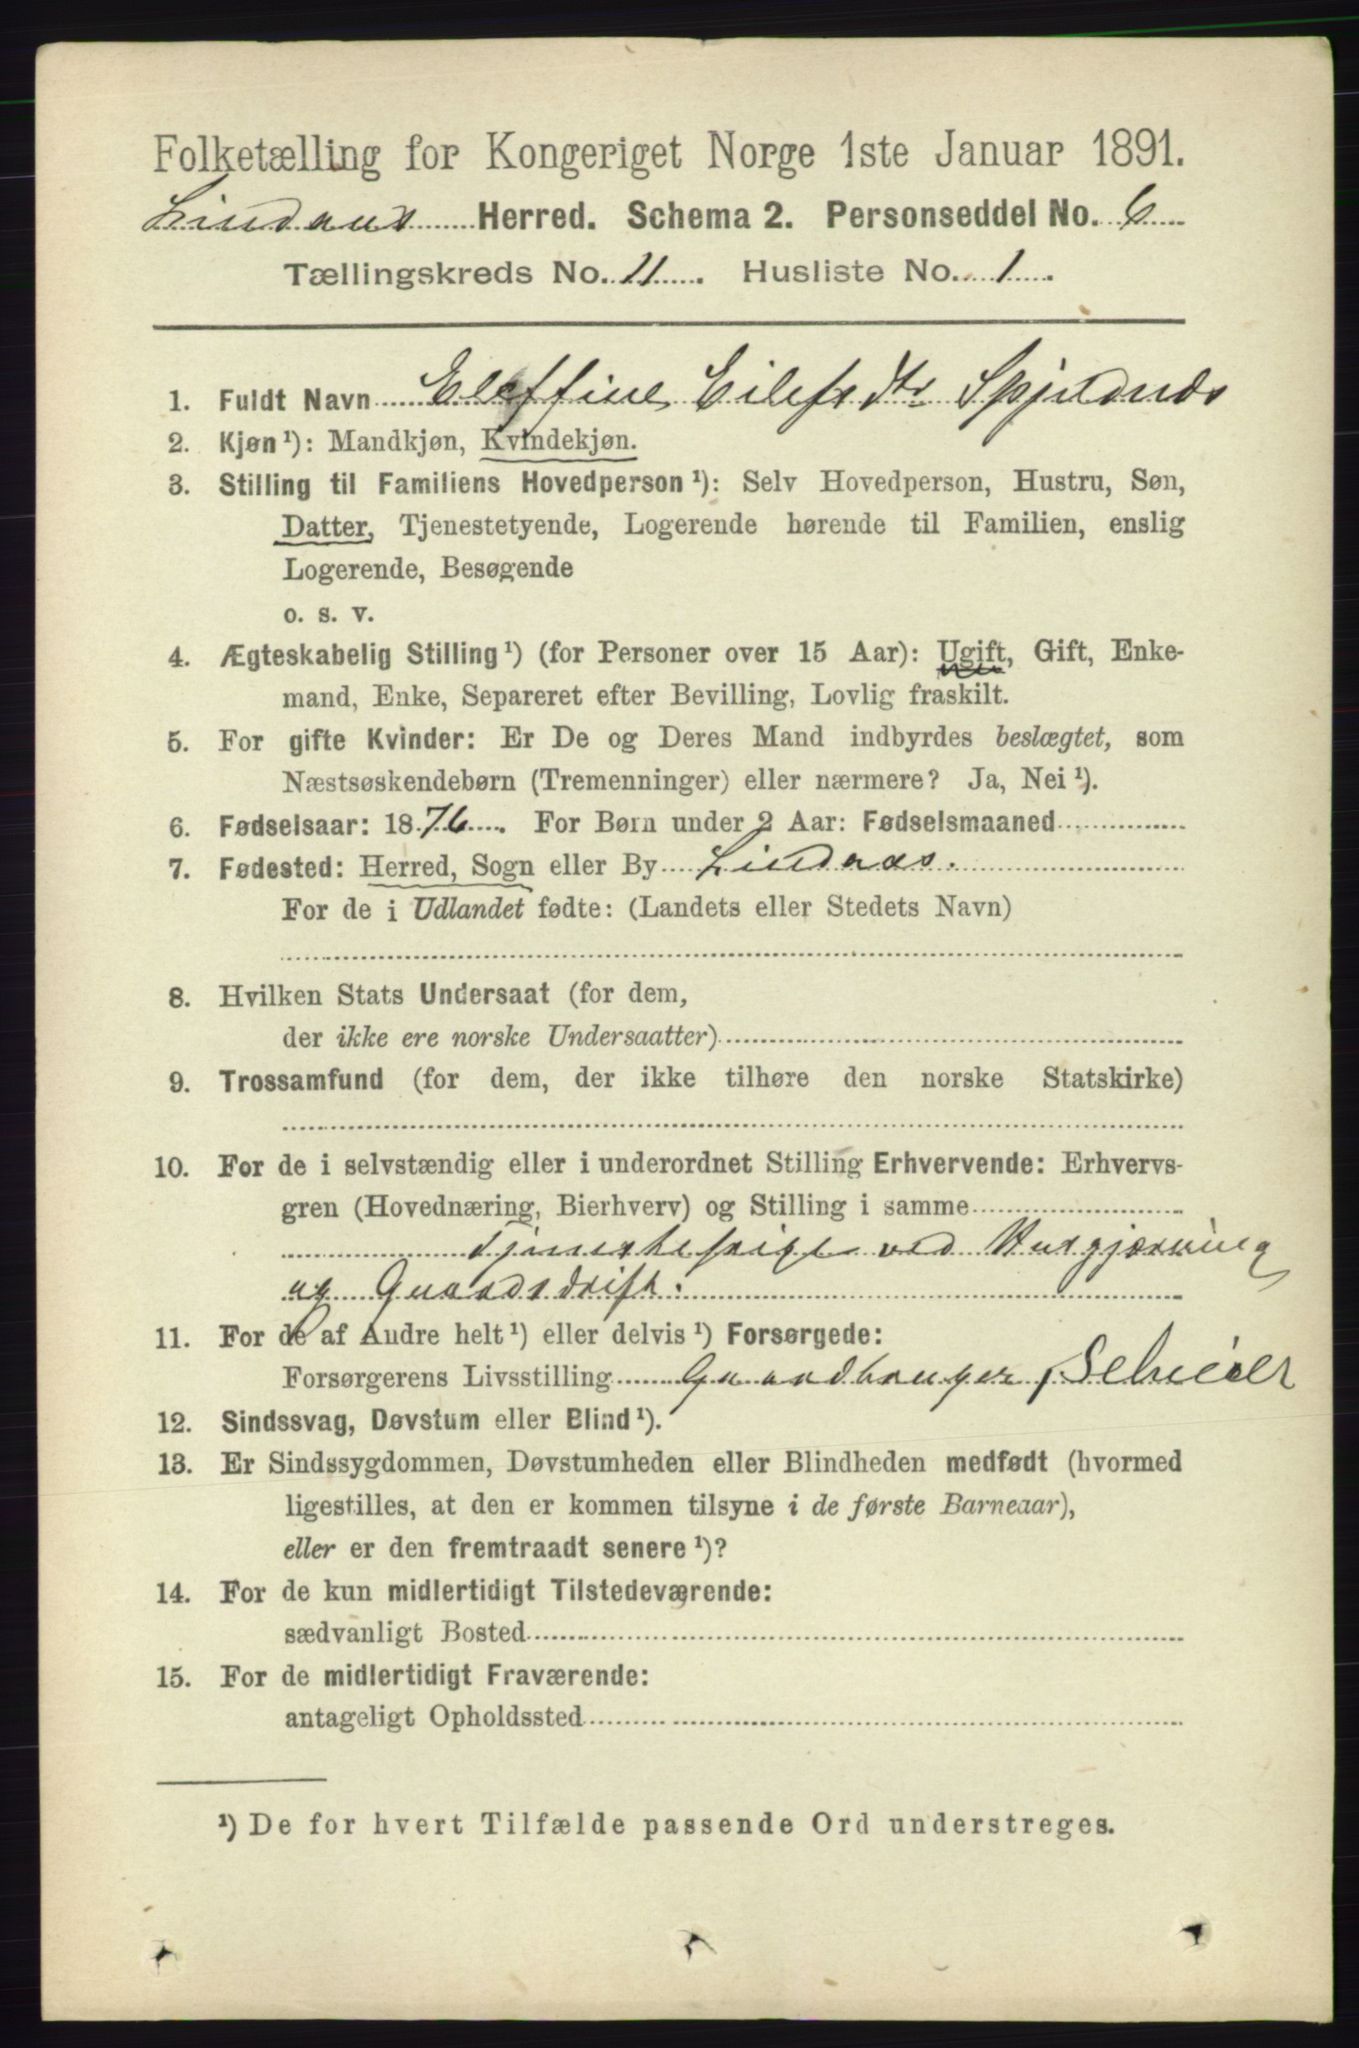 Folketælling for Kongeriget Norge 1ste Januar 1891.
Lindaas Herred. Schema 2. Personseddel No. 6
Tællingskreds No. 11. Husliste No. 1.
1. Fuldt Navn Eleffine Eilefsdtr Spjudnes
2. Kjøn ¹): Mandkjøn, Kvindekjøn.
3. Stilling til Familiens Hovedperson ¹): Selv Hovedperson, Hustru, Søn,
Datter, Tjenestetyende, Logerende hørende til Familien, enslig
Logerende, Besøgende
o. s. v.
4. Ægteskabelig Stilling ¹) (for Personer over 15 Aar): Ugift, Gift, Enke-
mand, Enke, Separeret efter Bevilling, Lovlig fraskilt.
5. For gifte Kvinder: Er De og Deres Mand indbyrdes beslægtet, som
Næstsøskendebørn (Tremenninger) eller nærmere? Ja, Nei ¹).
6. Fødselsaar: 1876. For Børn under 2 Aar: Fødselsmaaned
7. Fødested: Herred, Sogn eller By Lindaas.
For de i Udlandet fødte: (Landets eller Stedets Navn)
8. Hvilken Stats Undersaat (for dem,
der ikke ere norske Undersaatter)
9. Trossamfund (for dem, der ikke tilhøre den norske Statskirke)
10. For de i selvstændig eller i underordnet Stilling Erhvervende: Erhvervs-
gren (Hovednæring, Bierhverv) og Stilling i samme
Tjenestepige ved Husgjærning
og Gaardsdrift.
11. For de af Andre helt ¹) eller delvis ¹) Forsørgede:
Forsørgerens Livsstilling Gaardbruger, Selveier
12. Sindssvag, Døvstum eller Blind ¹).
13. Er Sindssygdommen, Døvstumheden eller Blindheden medfødt (hvormed
ligestilles, at den er kommen tilsyne i de første Barneaar),
eller er den fremtraadt senere ¹)?
14. For de kun midlertidigt Tilstedeværende:
sædvanligt Bosted
15. For de midlertidigt Fraværende:
antageligt Opholdssted
¹) De for hvert Tilfælde passende Ord understreges.